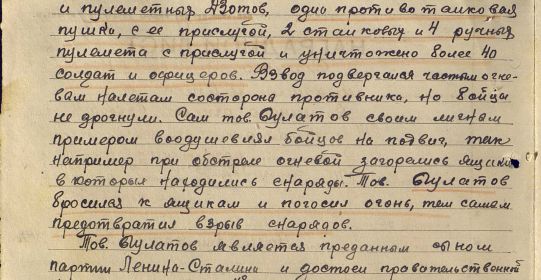 и пулеметных Дзотов, одно противо танковая
пушка, с ее прислугой, 2 станковых и 4 ручных
пулемета с прислугой и уничтожено более 40
солдат и офицеров. Взвод подвергался частым огне-
вам налетам состорона противника, но бойцы
не дрогнули. Сам тов. Булатов своим личным
примером воодушевлял бойцов на подвиг, так
например при обстреле огневой загорелись ящики
в которых находились снаряды. Тов. Булатов
бросился к ящикам и погосил огонь, тем самым
предотвратил взрыв снарядов.
Тов. Булатов является преданным сыном
партии Ленина-Сталина и достоен правительственной